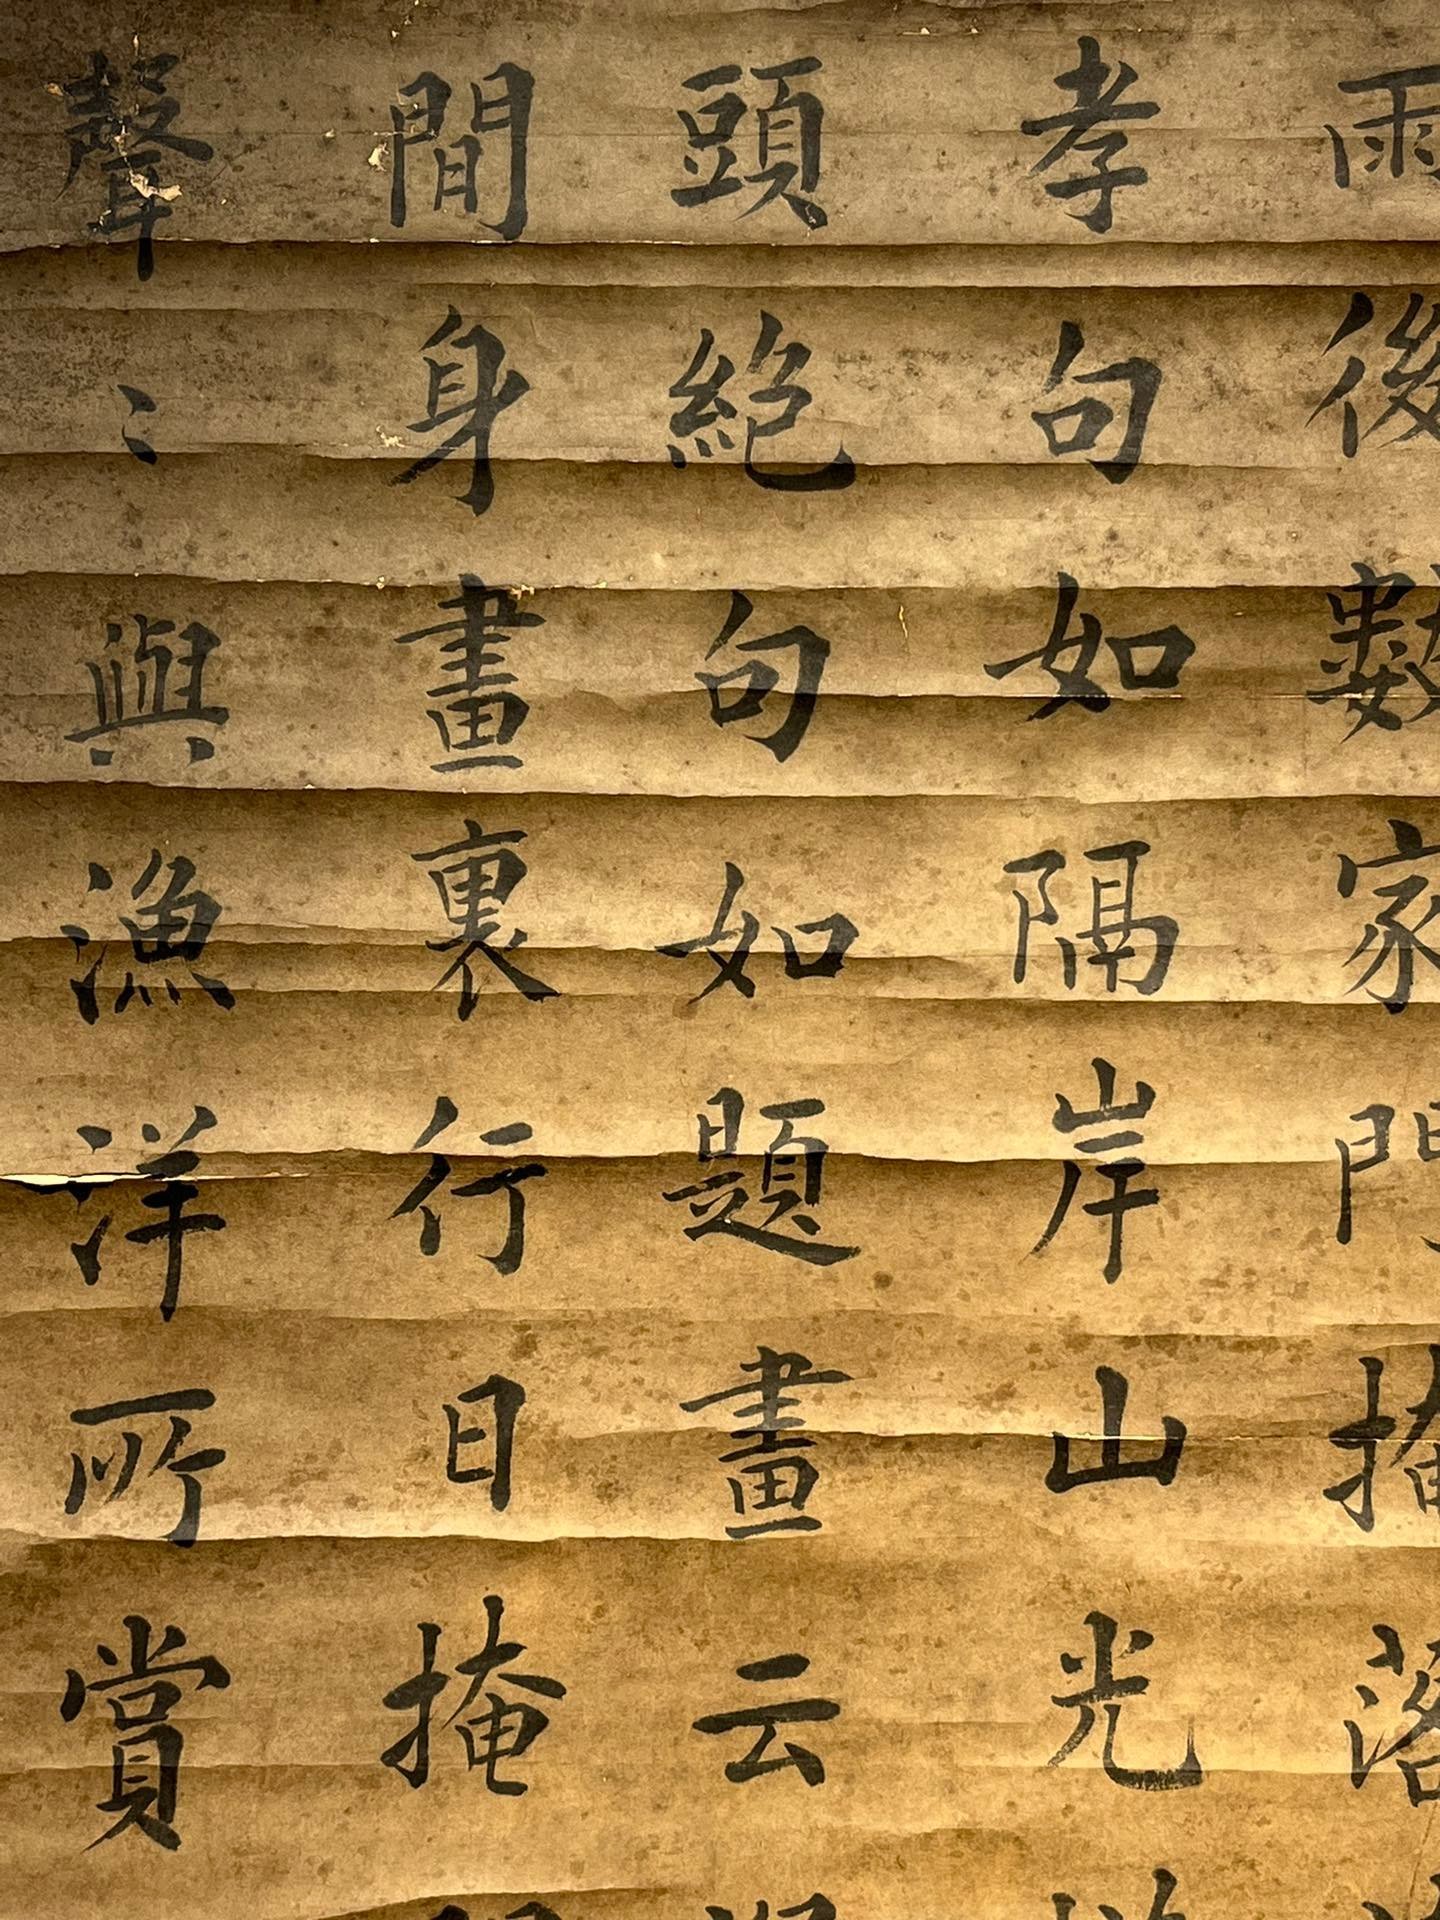 雨後數家門掩落
孝句如隔岸山光
頭絕句如題畫云
間身畫裏行日掩
聲〻與漁洋所賞